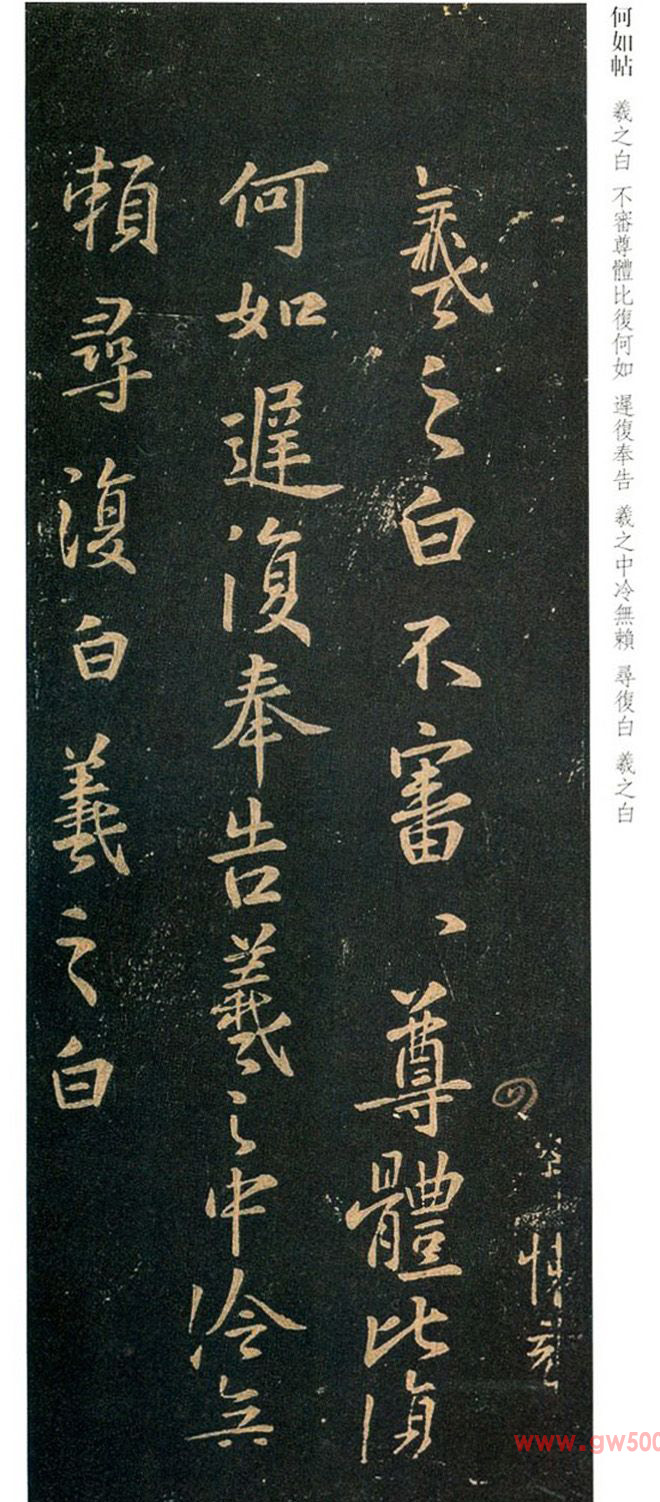 何如帖 羲之白 不審尊體比復何如 遲復奉告 羲之中冷無賴 尋復白 羲之白
羲之白不審、尊體比復
何如遲復奉告羲之中冷無
賴尋復白羲之白
www.gw500